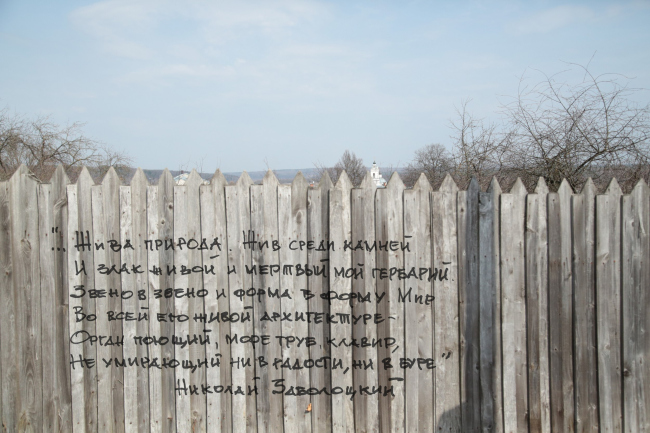 "... Жива природа. Жив среди камней
И злак живой и мертвый мой гербарий
Звено в звено и форма в форму. Мир
Во всей его живой архитектуре-
Орган поющий, море труб, клавир,
Не умирающий ни в радости, ни в буре"
Николай Заболоцкий